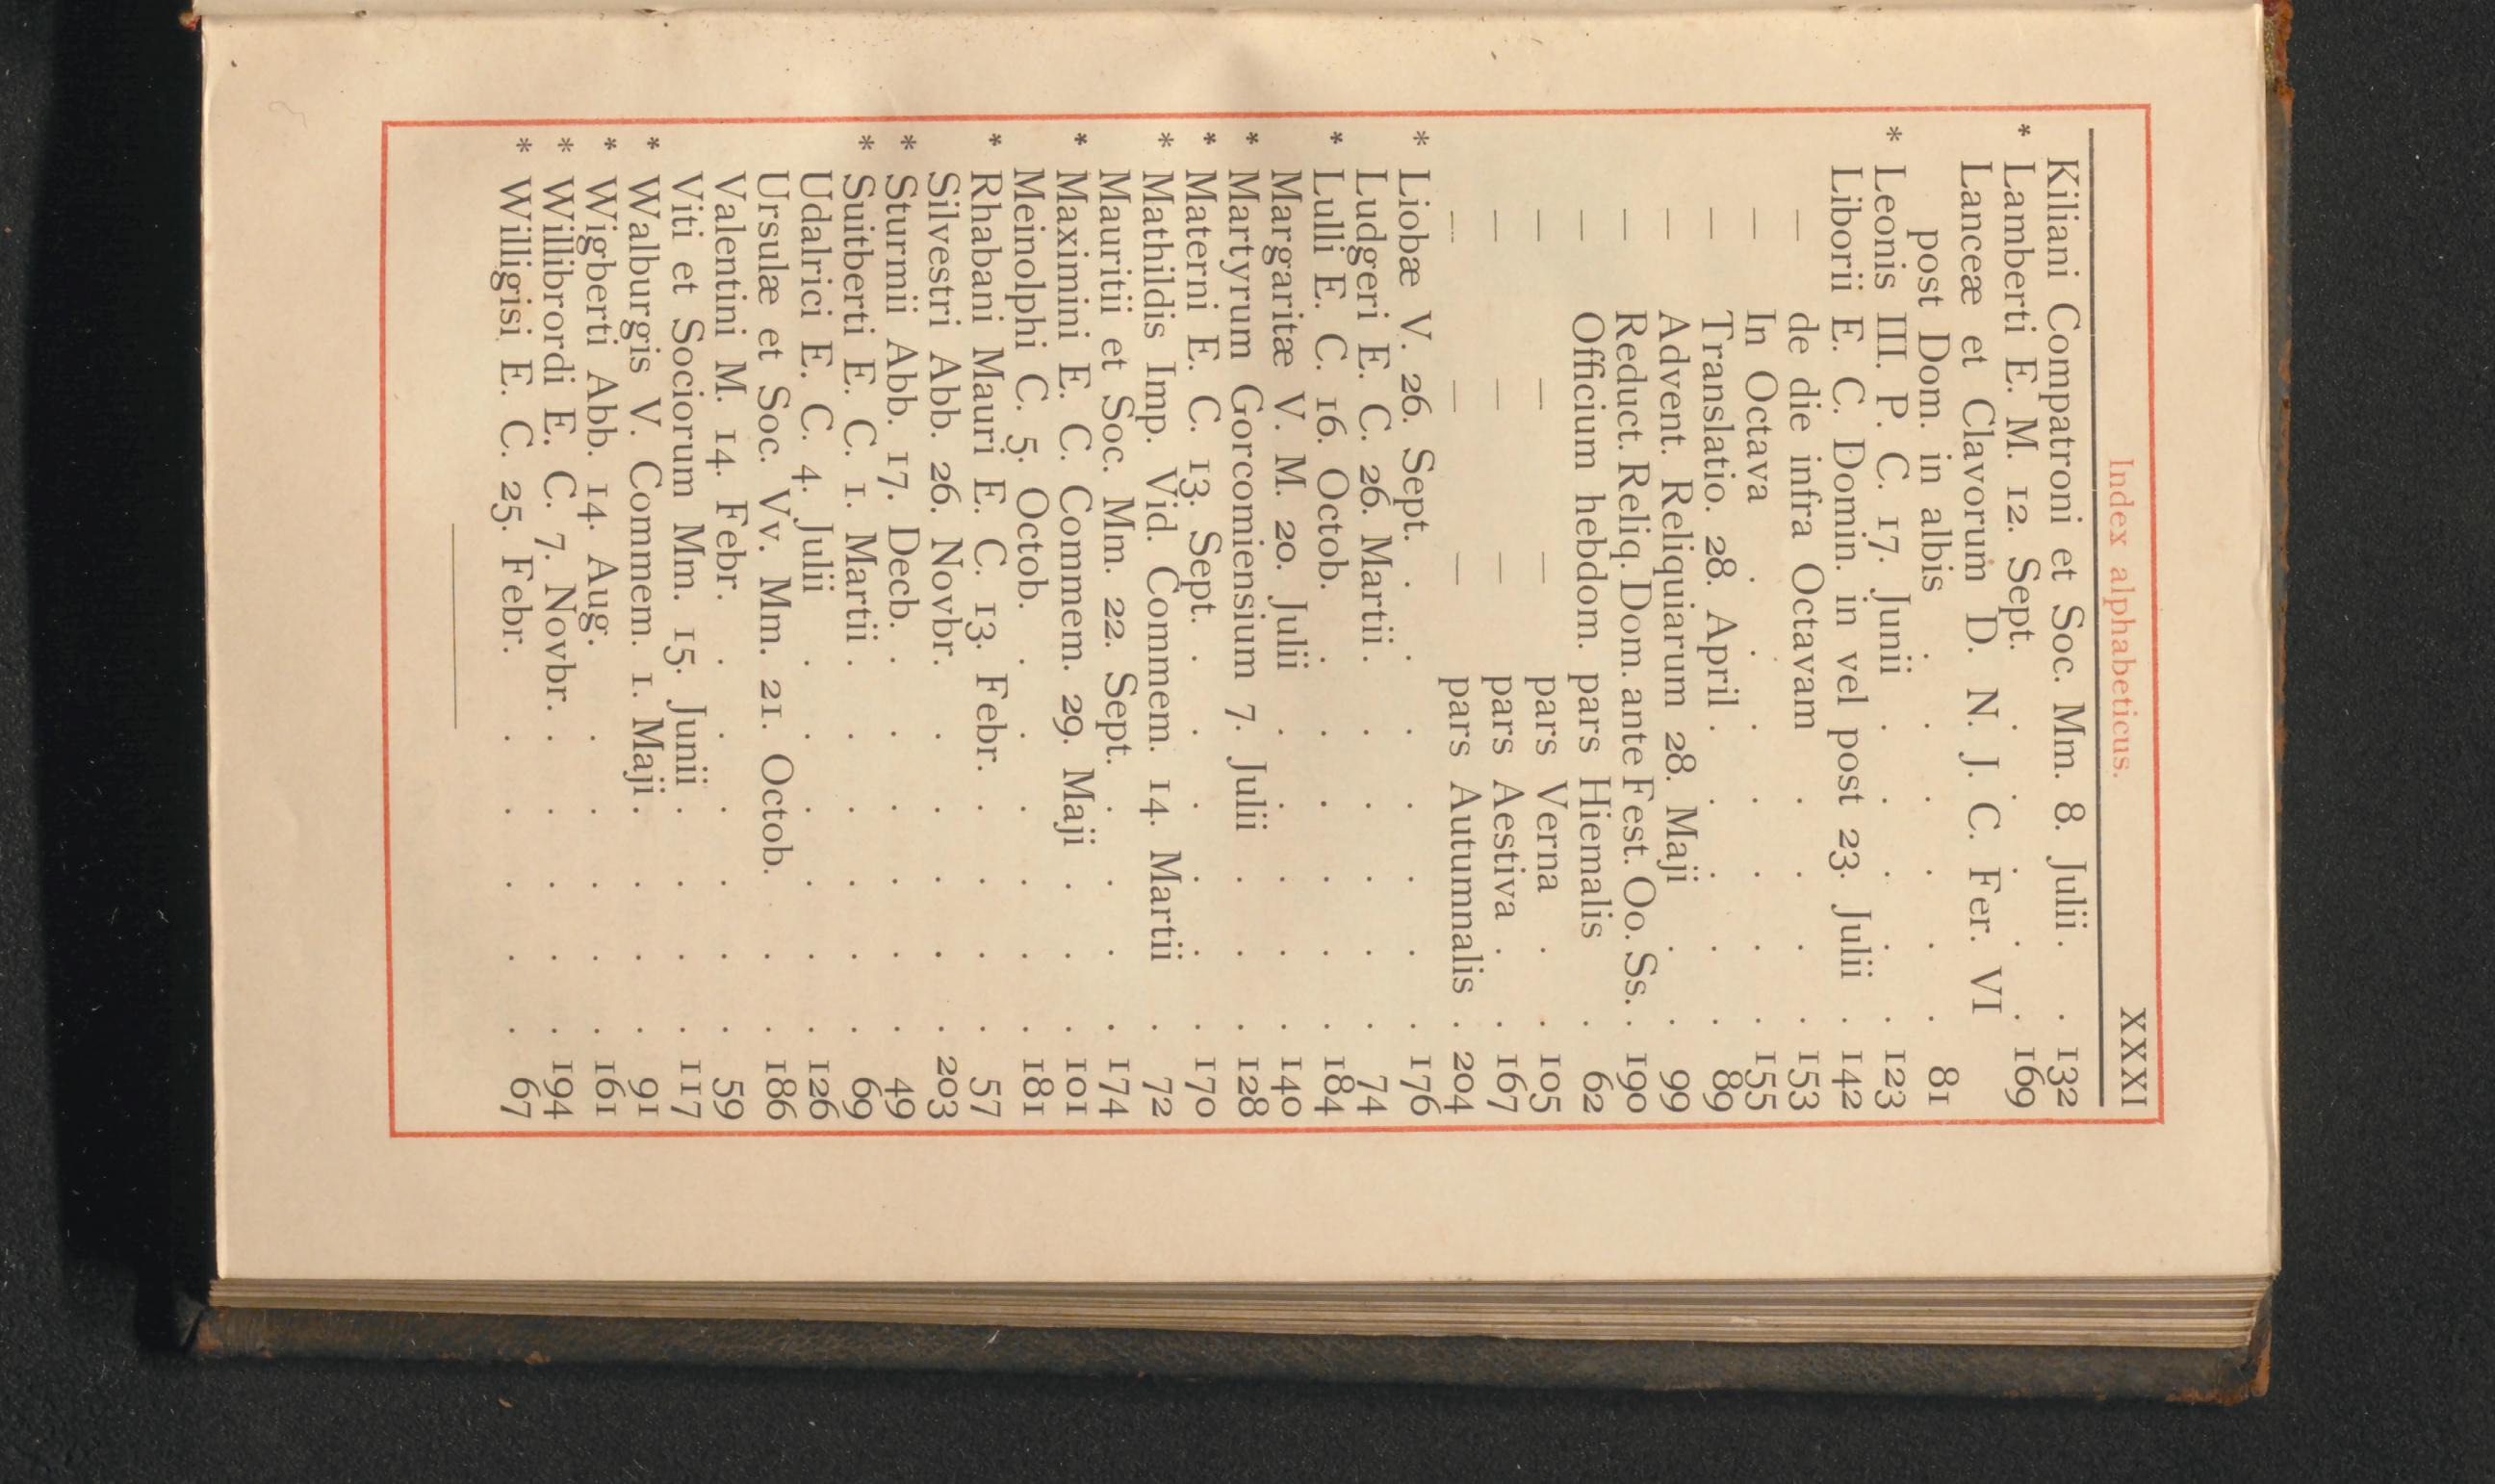 Index alphabeticus. XXXI
Kiliani Compatroni et Soc. Mm. 8. Julii . . 132
* Lamberti E. M. 12. Sept. . . . . . 169
Lanceæ et Clavorum D. N. J. C. Fer. VI
post Dom. in albis . . . . . . 81
* Leonis III. P. C. 17. Junii . . . . . 123
Liborii E. C. Domin. in vel post 23. Julii . 142
— de die infra Octavam . . . . 153
— In Octava . . . . . . . 155
— Translatio. 28. April . . . . . 89
— Advent. Reliquiarum 28. Maji . . 99
— Reduct. Reliq. Dom. ante Fest. Oo. Ss. . 190
— Officium hebdom. pars Hiemalis . 62
— — — pars Verna . . 105
— — — pars Aestiva . . 167
— — — pars Autumnalis . 204
* Liobæ V. 26. Sept. . . . . . . . 176
Ludgeri E. C. 26. Martii . . . . . . 74
* Lulli E. C. 16. Octob. . . . . . . 184
Margaritæ V. M. 20. Julii . . . . . 140
* Martyrum Gorcomiensium 7. Julii . . . 128
* Materni E. C. 13. Sept. . . . . . . 170
* Mathildis Imp. Vid. Commem. 14. Martii . 72
Mauritii et Soc. Mm. 22. Sept. . . . . 174
* Maximini E. C. Commem. 29. Maji . . . 101
Meinolphi C. 5. Octob. . . . . . . 181
* Rhabani Mauri E. C. 13. Febr. . . . . 57
Silvestri Abb. 26. Novbr. . . . . . 203
* Sturmii Abb. 17. Decb. . . . . . . 49
* Suitberti E. C. 1. Martii . . . . . . 69
Udalrici E. C. 4. Julii . . . . . . 126
Ursulæ et Soc. Vv. Mm. 21. Octob. . . . 186
Valentini M. 14. Febr. . . . . . . 59
Viti et Sociorum Mm. 15. Junii . . . . 117
* Walburgis V. Commem. 1. Maji . . . . 91
* Wigberti Abb. 14. Aug. . . . . . . 161
* Willibrordi E. C. 7. Novbr. . . . . . 194
* Willigisi E. C. 25. Febr. . . . . . . 67